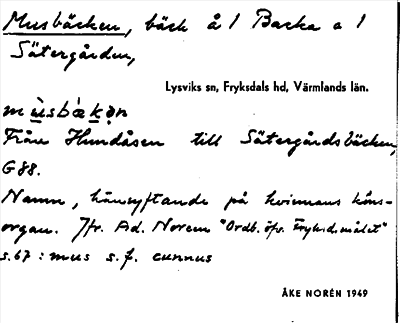 Musbäcken, bäck å 1 Backa o 1
Sätergården,
Lysviks sn, Fryksdals hd, Värmlands län.
mùsbàkən
Från Hundåsen till Sätergårdsbäcken,
G88.
Namn, hänsyftande på kvinnans köns-
organ. Jfr. Ad. Noreen "Ordb. öfv. Fryksd.målet"
s.67 : mus s.f. cunnus
ÅKE NORÉN 1949